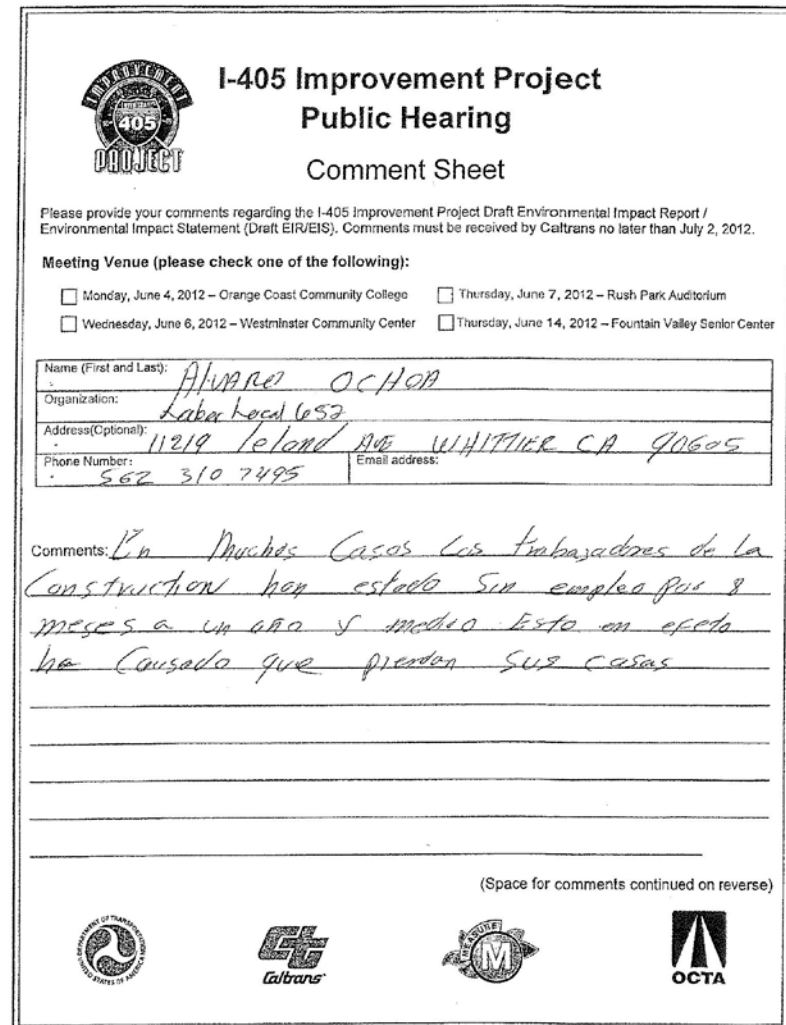 IMPROVEMENT
405
PROJECT
I-405 Improvement Project
Public Hearing
Comment Sheet
Please provide your comments regarding the I-405 Improvement Project Draft Environmental Impact Report /
Environmental Impact Statement (Draft EIR/EIS). Comments must be received by Caltrans no later than July 2, 2012.
Meeting Venue (please check one of the following):
Monday, June 4, 2012 – Orange Coast Community College Thursday, June 7, 2012 – Rush Park Auditorium
Wednesday, June 6, 2012 – Westminster Community Center Thursday, June 14, 2012 – Fountain Valley Senior Center
Name (First and Last): Alvaro OCHOA
Organization: Labor Local 652
Address(Optional): 11219 leland AVE WHITTIER CA 90605
Phone Number: 562 310 7495 Email address:
Comments: En Muchos Casos Los trabajadores de La
Construction han estado Sin empleo por 8
meses a un año y medio Esto en efecto
ha Causado que pierdan sus casas
(Space for comments continued on reverse)
DEPARTMENT OF TRANSPORTATION
UNITED STATES OF AMERICA
Caltrans
MEASURE
M
OCTA